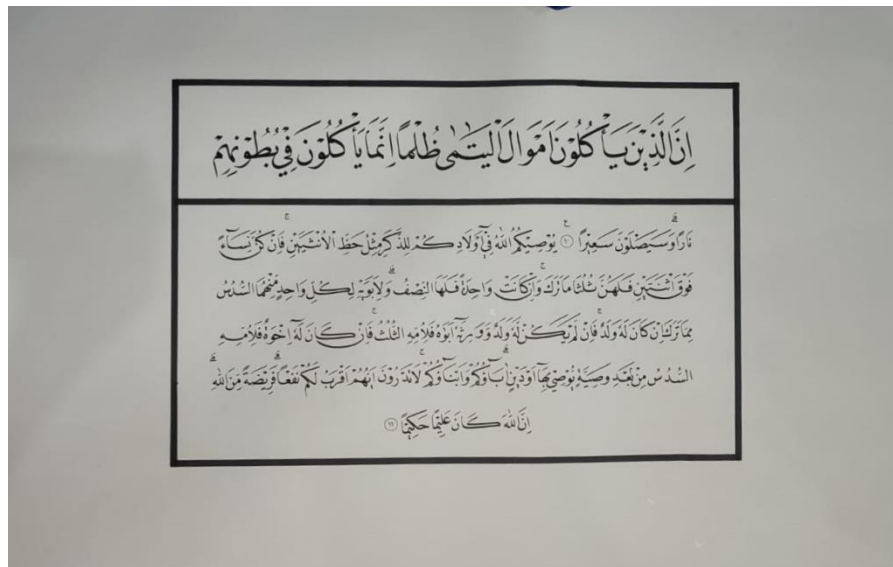 اِنَّ الَّذِيْنَ يَأْكُلُوْنَ اَمْوَالَ الْيَتٰمٰى ظُلْمًا اِنَّمَا يَأْكُلُوْنَ فِيْ بُطُوْنِهِمْ
نَارًا ۗ وَسَيَصْلَوْنَ سَعِيْرًا ۝١٠ ࣖ يُوْصِيْكُمُ اللّٰهُ فِيْٓ اَوْلَادِكُمْ لِلذَّكَرِ مِثْلُ حَظِّ الْاُنْثَيَيْنِ ۚ فَاِنْ كُنَّ نِسَاۤءً
فَوْقَ اثْنَتَيْنِ فَلَهُنَّ ثُلُثَا مَا تَرَكَ ۚ وَاِنْ كَانَتْ وَاحِدَةً فَلَهَا النِّصْفُ ۗ وَلِاَبَوَيْهِ لِكُلِّ وَاحِدٍ مِّنْهُمَا السُّدُسُ
مِمَّا تَرَكَ اِنْ كَانَ لَهٗ وَلَدٌ ۚ فَاِنْ لَّمْ يَكُنْ لَّهٗ وَلَدٌ وَّوَرِثَهٗٓ اَبَوٰهُ فَلِاُمِّهِ الثُّلُثُ ۚ فَاِنْ كَانَ لَهٗٓ اِخْوَةٌ فَلِاُمِّهِ
السُّدُسُ مِنْۢ بَعْدِ وَصِيَّةٍ يُّوْصِيْ بِهَآ اَوْ دَيْنٍ ۗ اٰبَاۤؤُكُمْ وَاَبْنَاۤؤُكُمْ ۚ لَا تَدْرُوْنَ اَيُّهُمْ اَقْرَبُ لَكُمْ نَفْعًا ۗ فَرِيْضَةً مِّنَ اللّٰهِ ۗ
اِنَّ اللّٰهَ كَانَ عَلِيْمًا حَكِيْمًا ۝١١